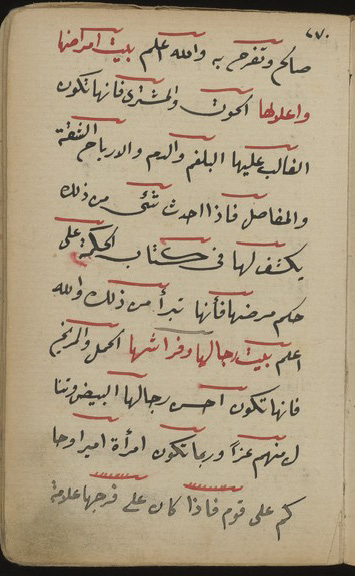 ٧٧٠
صالح وتفرح به والله اعلم بيت امراضها
واعلالها الحوت والمشتري فانها تكون
الغالب عليها البلغم والدم والارياح الشقة
والمفاصل فاذا احدث شئ من ذلك
يكشف لها في كتاب الحكمة على
حكم مرضها فأنها تبرأ من ذلك والله
اعلم بيت رجالها وفراشها الحمل والمريخ
فانها تكون احسن رجالها البيض وتنا
ل منهم عزاً وربما تكون امرأة امير او حا
كم على قوم فاذا كان على فرجها علامة